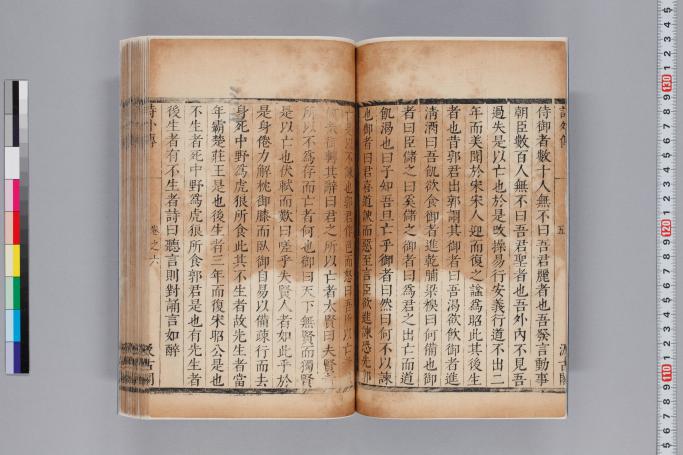 侍御者數十人無不曰吾君麗者也吾發言動事
朝臣數百人無不曰吾君聖者也吾外內不見吾
過失是以亡也於是改操易行安義行道不出二
年而美聞於宋宋人迎而復之諡爲昭此其後生
者也昔郭君出郭謂其御者曰吾渴欲飲御者進
清酒曰吾飢欲食御者進乾脯梁糗曰何備也御
者曰臣儲之曰奚儲之御者曰爲君之出亡而道
飢渴也曰子知吾且亡乎御者曰然曰何不以諫
也御者曰君喜道諛而惡至言臣欲進諫恐先郭
亡是以不諫也郭君作色而怒曰吾所以亡
御轉其辭曰君之所以亡者大賢曰夫賢
所以不爲存而亡者何也御曰天下無賢而獨賢
是以亡也伏軾而歎曰嗟乎夫賢人者如此乎於
是身倦力解枕御膝而臥御自易以備疎行而去
身死中野爲虎狼所食此其不生者故先生者當
年霸楚莊王是也後生者三年而復宋昭公是也
不生者死中野爲虎狼所食郭君是也有先生者
後生者有不生者詩曰聽言則對誦言如醉
卷之六
五
汲古閣
130
120
110